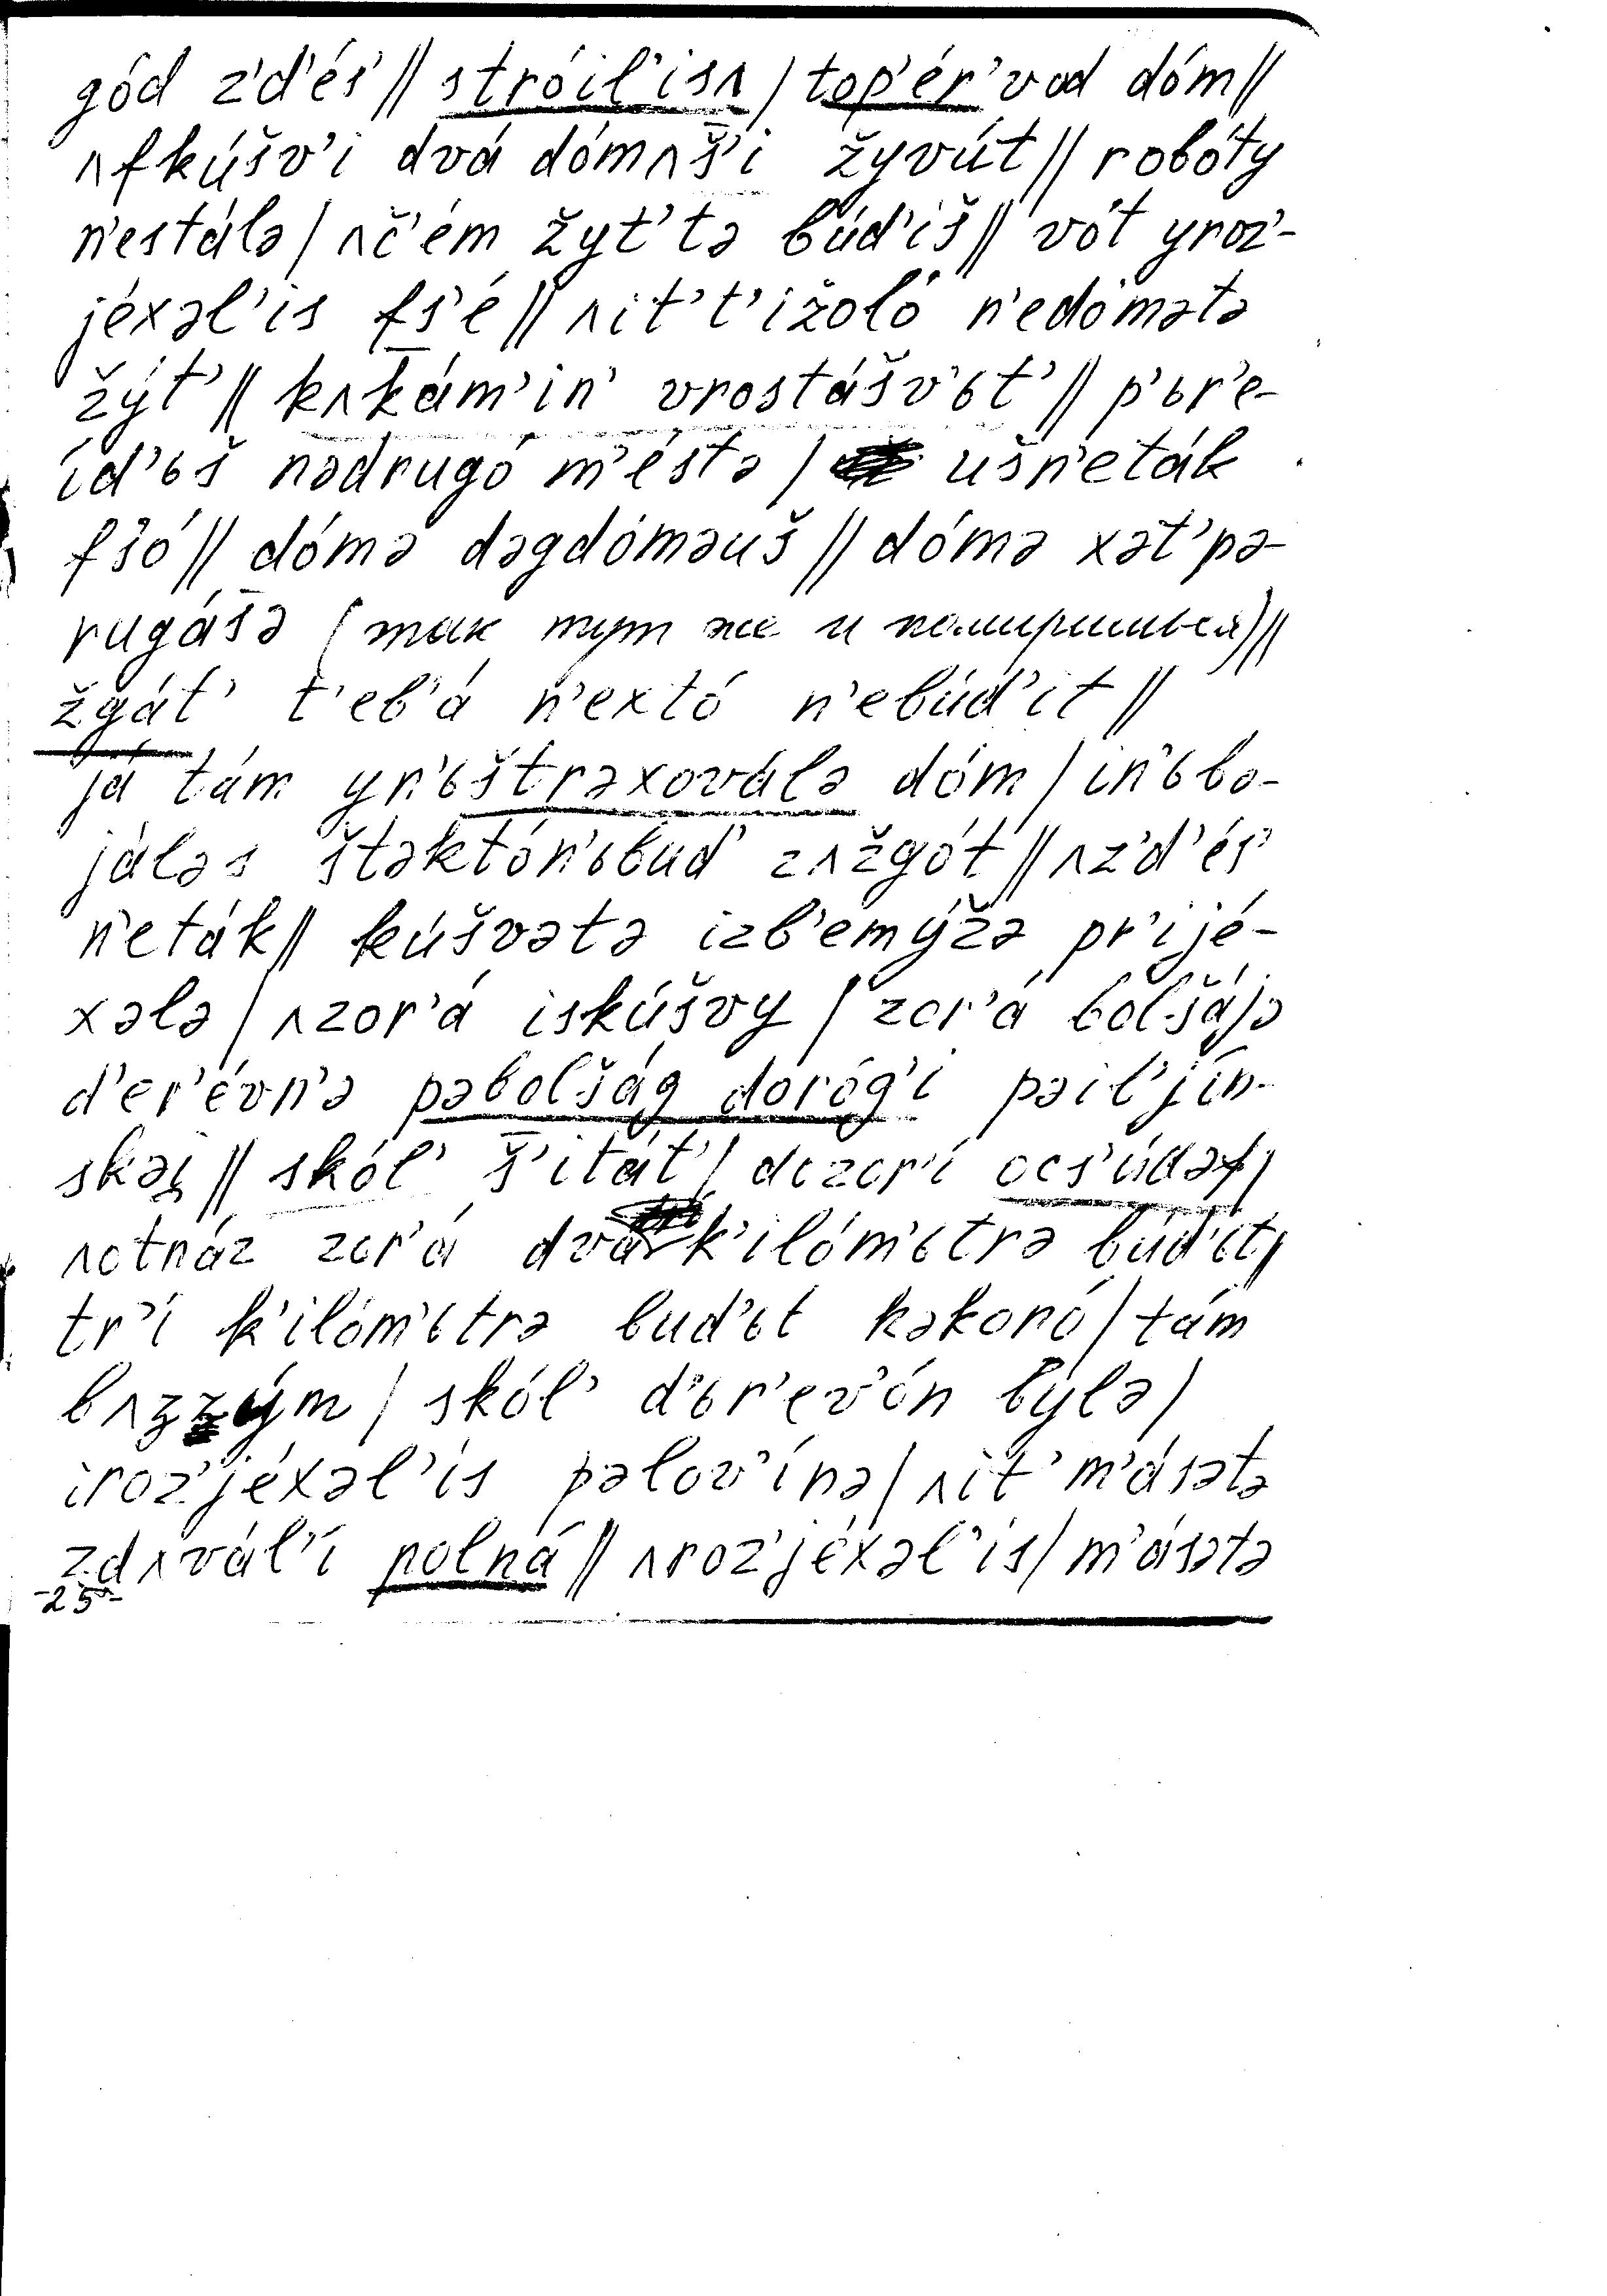 gód z'd'éś // stróil'isʌ / top'ér' vod dóm //
ʌfkúšv'i dvá dómʌš̄'i žyvút // robóty
n'estálə / ʌč'ém žyt'tə búd'iš // vót yroz'-
jéxəl'is fs'é // ʌit't'ižoló n'edómətə
žýt' // kʌkám'in' vrostášv'ьt' // p'ьr'e-
íd'ьš nədrugó m'éstə / ušn'eták
fs'ó // dómə dəgdóməuš // dómə xət'pə-
rugás̄ə (так тут же и помиришься) //
žgát' t'eb'á n'extó n'ebúd'it //
já tám yn'ьštrəxoválə dóm / in'ьbo-
jáləs štəktón'ьbud' zʌžgót // ʌz'd'éś
n'eták // kúšvətə izb'emýžə pr'ijé-
xələ / ʌzor'á iskúšvy / zor'á bolšájə
d'er'évn'ə pəbolšág doróg'i pəil'jín-
skəj // skól' š̄'itát' / dozor'í ocs'údəf /
ʌotnáz zor'á dvá k'ilóm'ьtrə búd'ьt /
tr'í k'ilóm'ьtrə bud'ьt kəkonó / tám
bʌzzým / skól' d'ьr'ev'ón býlə /
iroz'jéxəl'is pəlov'ínə / ʌit' m'ásətə
zdʌvál'i polná // ʌroz'jéxəl'is / m'ásətə
-25-